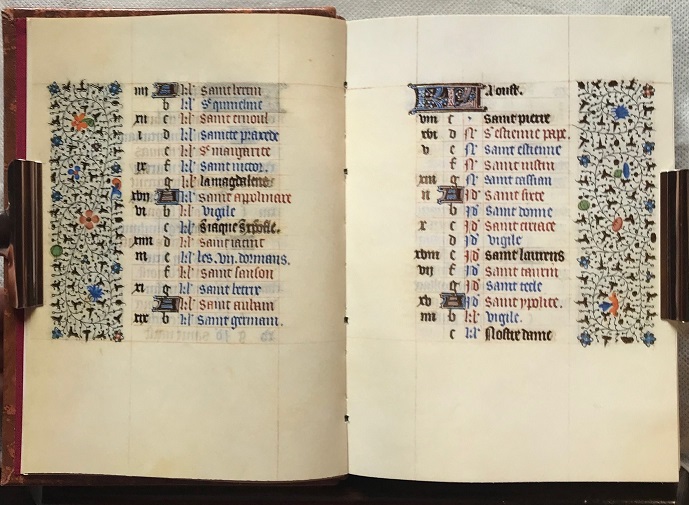 iiii A kl' saint bertin
b kl' S' quineline
xii c kl' saint ernoul
i d kl' saincte praxede
e kl' S' margarite
ix f kl' saint victor.
g kl' la magdalene
xvii A kl' saint apolinaire
vi b kl' vigile
c kl' S' iaque S' xpofle.
xiiii d kl' saint iacint
iii e kl' les .vii. domans.
f kl' saint sanson
xi g kl' saint betrix
A kl' saint aubain
xix b kl' saint germain.
KL Aoust.
viii c saint pierre
xvi d N' S' estienne pape.
v e N' saint estienne
f N' saint iustin
xiii g N' saint cassian
ii A Id' saint sixte
b Id' saint donne
x c Id' saint ciriace
d Id' vigile
xviii e Id' saint laurens
vii f Id' saint taurin
g Id' saint tecle
xv A Id' saint ypolite.
iiii b kl' vigile.
c kl' Nostre dame